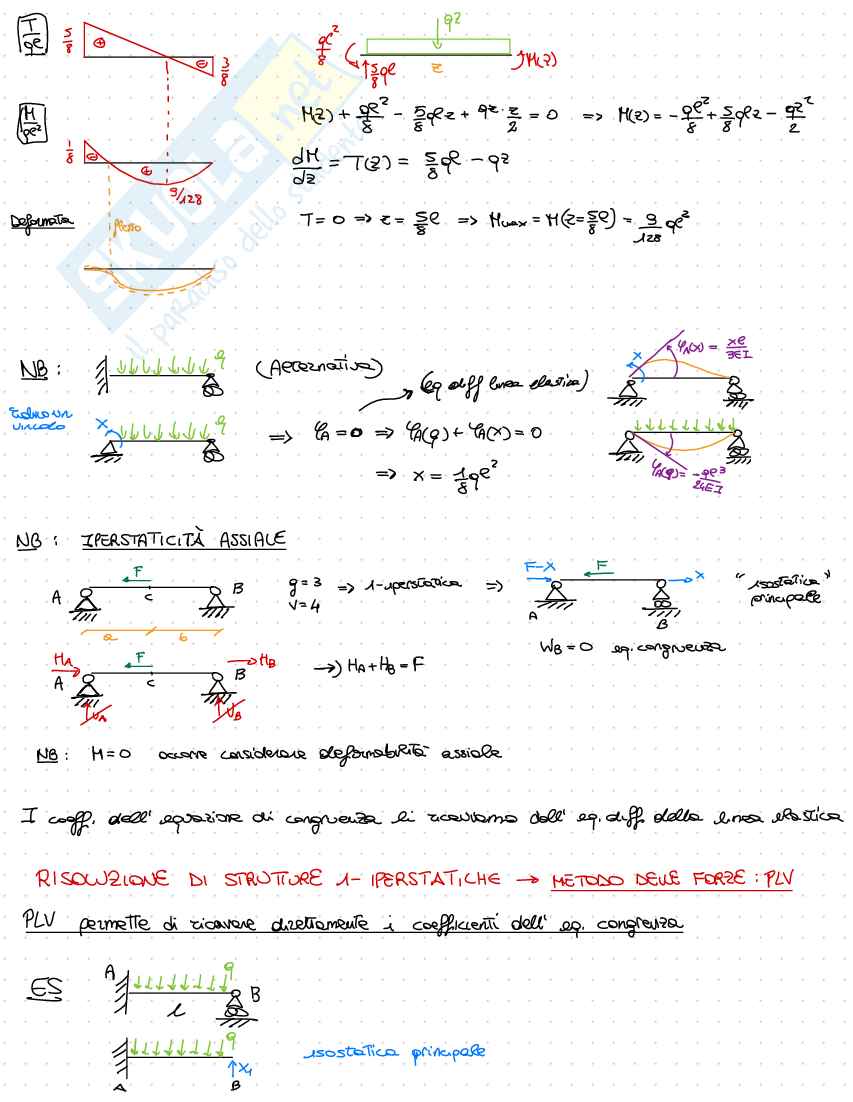 T/ql
5/8
⊕
⊖
3/8
qz
ql²/8
5/8 ql
z
M(z)
M/ql²
1/8
⊖
⊕
9/128
M(z) + ql²/8 - 5/8 qlz + qz·z/2 = 0 => M(z) = -ql²/8 + 5/8 qlz - qz²/2
dM/dz = T(z) = 5/8 ql - qz
T=0 => z = 5/8 l => Mmax = M(z=5/8 l) = 9/128 ql²
Deformata
flesso
SKUOLA.net
il paradiso dello studente
NB:
q
(Alternativa)
(eq diff linea elastica)
x
φA(x) = xl/3EI
riduco un vincolo
x
q
=> φA = 0 => φA(q) + φA(x) = 0
=> x = 1/8 ql²
φA(q) = -ql³/24EI
NB: IPERSTATICITÀ ASSIALE
A
F
C
B
g=3
v=4
=> 1-iperstatica =>
F-X
F
x
A
B
"isostatica" principale
a
b
WB = 0 eq. congruenza
HA
A
F
C
B
HB
VA
VB
→) HA + HB = F
NB: M=0 occorre considerare deformabilità assiale
I coeff. dell'equazione di congruenza li ricaviamo dall'eq. diff. della linea elastica
RISOLUZIONE DI STRUTTURE 1-IPERSTATICHE → METODO DELLE FORZE: PLV
PLV permette di ricavare direttamente i coefficienti dell'eq. congruenza
ES
A
q
l
B
q
A
B
x₁
isostatica principale